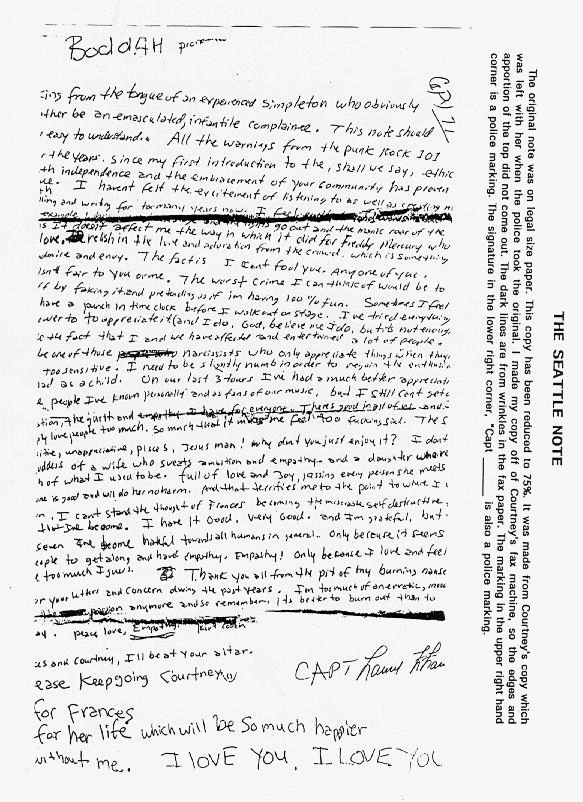 BoddAH
ing from the tongue of an experienced simpleton who obviously
ther be an emasculated, infantile complainee. This note should
easy to understand. All the warnings from the punk Rock 101
the years. since my first introduction to the, shall we say, ethic
th independence and the embracement of your community has proven
ue. I havent felt the excitement of listening to as well as creating
ing and writing for too many years now. I feel
go out and the manic roar of the
doesnt affect me the way in which it did for Freddy Mercury who
love, relish in the love and adoration from the crowd. which is something
admire and envy. The fact is I cant fool you. Any one of you.
isnt fair to you or me. The worst crime I can think of would be to
ff by faking it and pretending as if im having 100% fun. Sometimes I feel
have a punch in time clock before I walk out on stage. I've tried everything
ower to appreciate it (and I do, God, believe me I do, but its not enough
e the fact that I and we have affected and entertained a lot of people.
be one of those narcissists who only appreciate things when they
too sensitive. I need to be slightly numb in order to regain the enthusia
ad as a child. On our last 3 tours I've had a much better appreciati
people I've known personally and as fans of our music, but I still cant get
stion, the guilt and empathy I have for everyone. Theres good in all of us and
ply love people too much. So much that it makes me feel too fucking sad. The s
itive, unappreciative, pisces, Jesus man! Why dont you just enjoy it? I dont
oddess of a wife who sweats ambition and empathy. and a daughter who re
h of what I used to be. full of love and Joy, kissing every person she meets
one is good and will do her no harm. And that terrifies me to the point to where I
n. I can't stand the thought of Frances becoming the miserable self destructive,
that Ive become. I have it Good, very Good. and I'm grateful, but
seven Ive become hateful towards all humans in general. Only because it seems
eople to get along and have empathy. Empathy! Only because I love and feel
e too much I guess. Thank you all from the pit of my burning nause
or your letters and concern during the past years. I'm too much of an erratic, moo
passion anymore and so remember, its better to burn out than to
ay. peace love, Empathy. Kurt Cobain
ces and Courtney, I'll be at your altar.
ease Keep going Courtney
CAPT
for Frances
for her life which will be so much happier
without me. I LOVE YOU, I LOVE YOU
THE SEATTLE NOTE
The original note was on legal size paper. This copy has been reduced to 75%. It was made from Courtney's copy which
was left with her when the police took the original. I made my copy off of Courtney's fax machine, so the edges and
apportion of the top did not come out. The dark lines are from wrinkles in the fax paper. The marking in the upper right hand
corner is a police marking. The signature in the lower right corner, "Capt ______ is also a police marking.